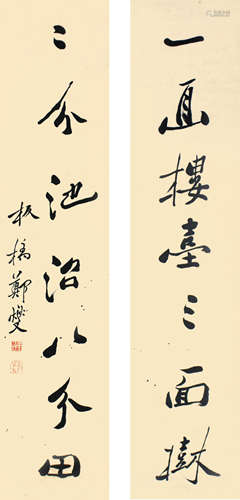 一面樓臺三面樹
二分池沼八分田
板橋鄭燮